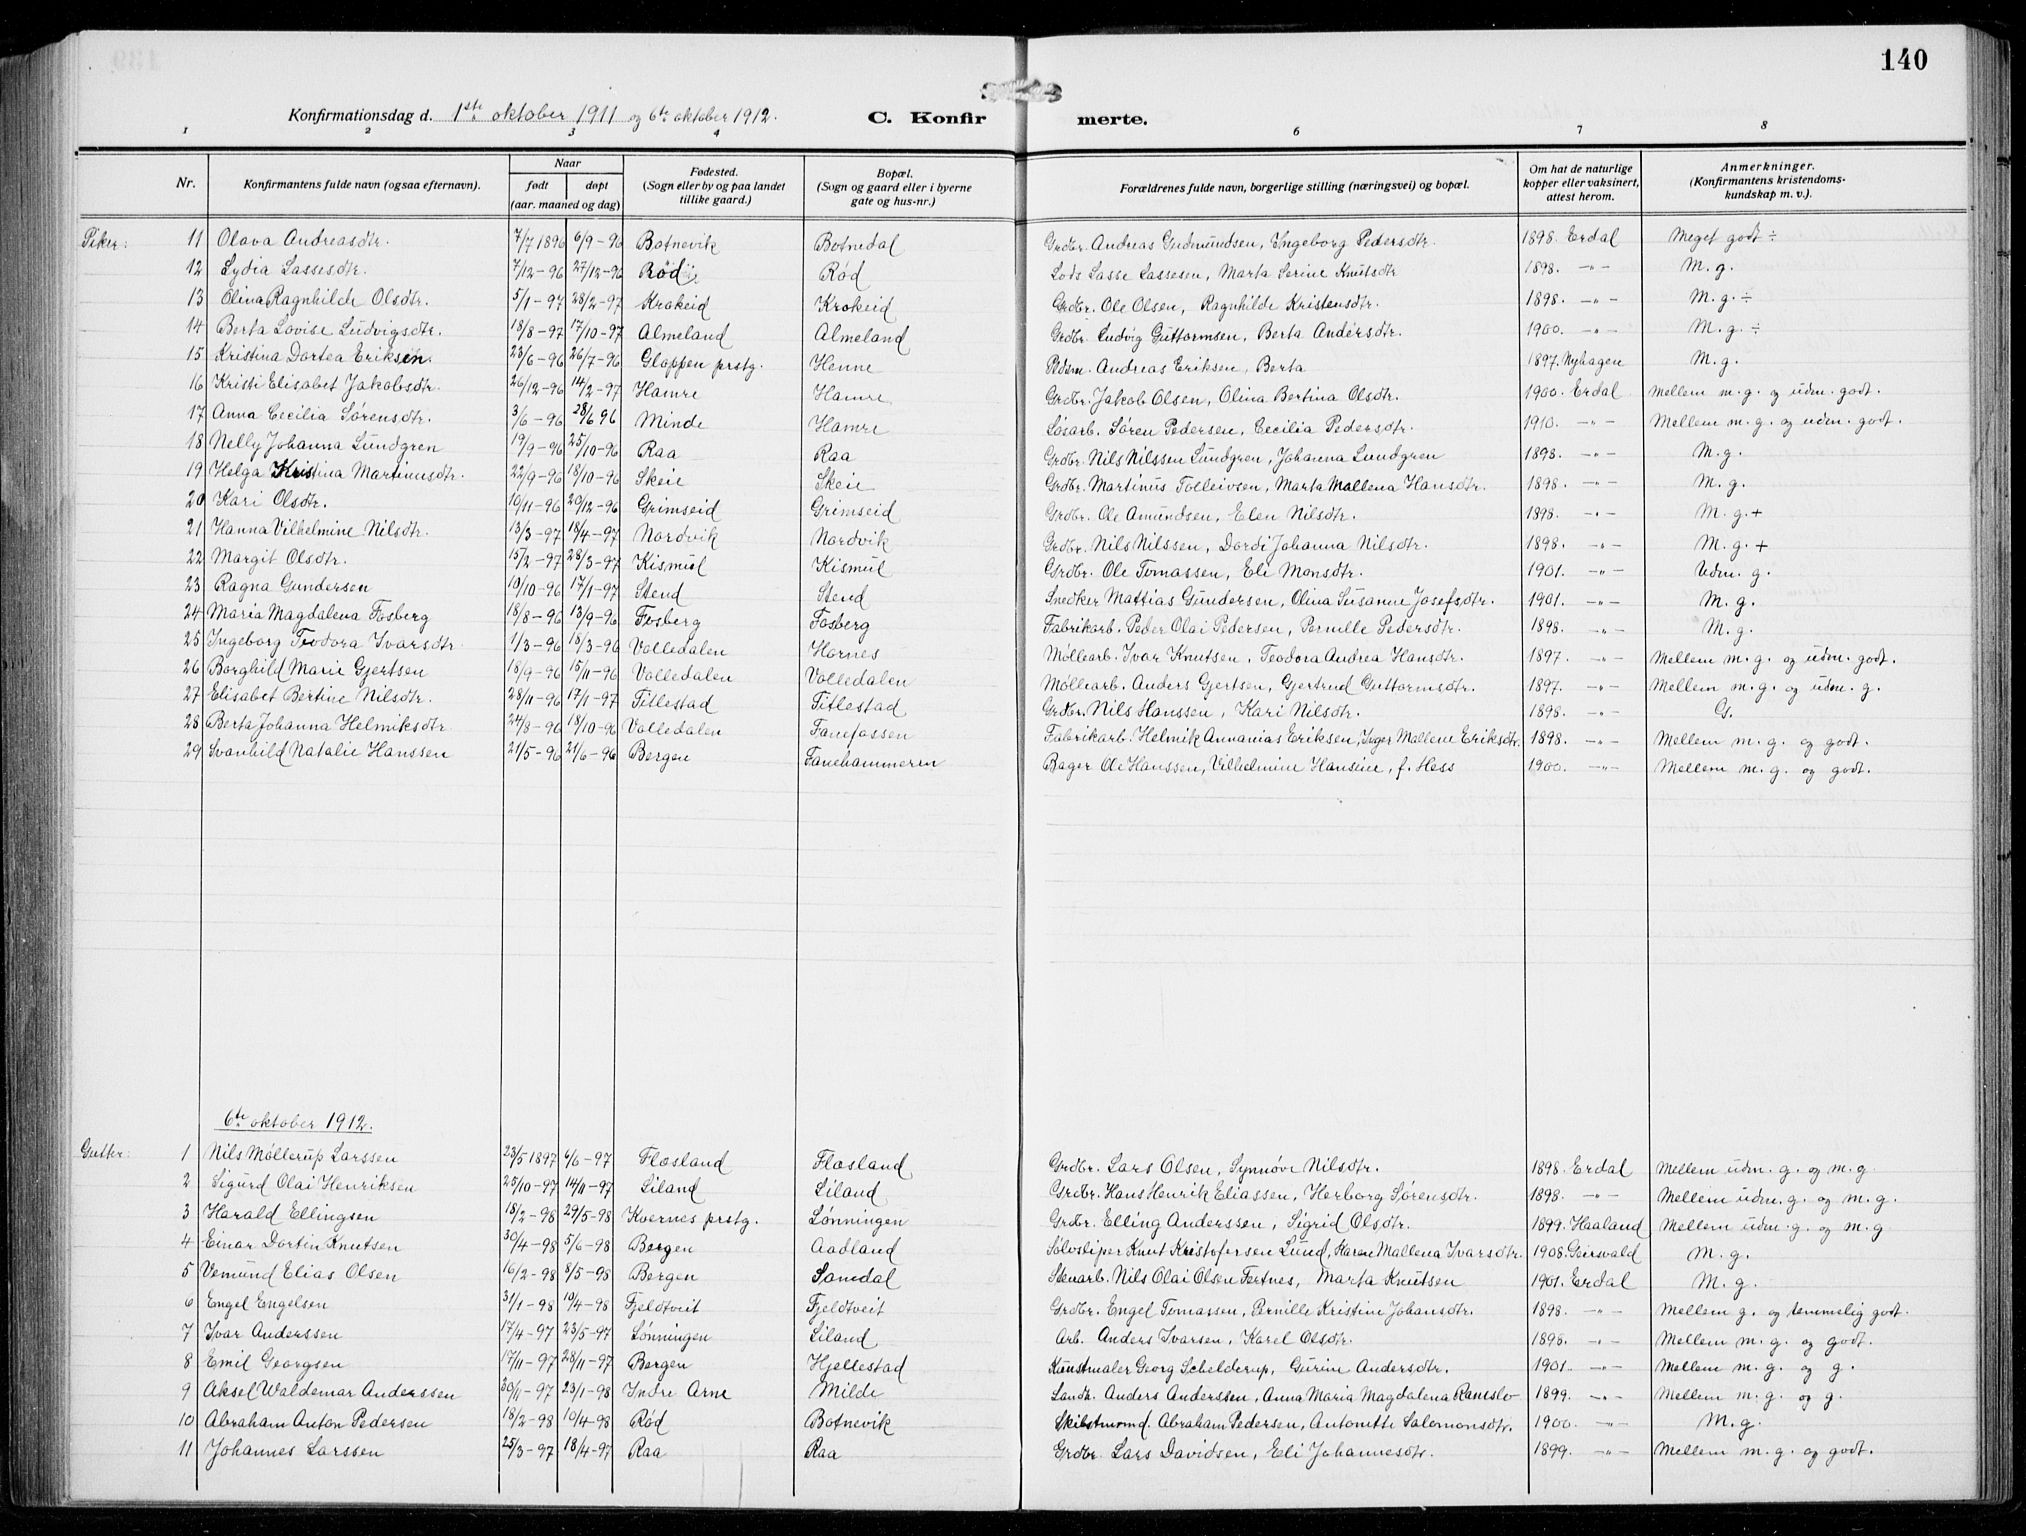 140
Konfirmationsdag d. 1ste oktober 1911 og 6te oktober 1912. C. Konfirmerte.
1 2 3 4 6 7 8
Nr. Konfirmantens fulde navn (ogsaa efternavn). Naar født døpt (aar, maaned og dag) Fødested. (Sogn eller by og paa landet tillike gaard.) Bopæl. (Sogn og gaard eller i byerne gate og hus-nr.) Forældrenes fulde navn, borgerlige stilling (næringsvei) og bopæl. Om hat de naturlige kopper eller vaksinert, attest herom. Anmerkninger. (Konfirmantens kristendomskundskap m. v.).
Piker: 11 Olava Andreasdtr. 7/7 1896 6/9-96 Botnevik Botnedal Grdbr. Andreas Gudmundsen, Ingeborg Pedersdtr. 1898. Erdal Meget godt ÷
12 Lydia Lassesdtr. 7/12-96 27/12-96 Rød Rød Lods Lasse Lassesen, Marta Serine Knutsdtr 1898. -"- M. g.
13 Olina Ragnhilde Olsdtr. 5/1-97 28/2-97 Krokeid Krokeid Grdbr. Ole Olsen, Ragnhilde Kristensdtr. 1898. -"- M. g. ÷
14 Berta Lovise Ludvigsdtr. 18/8-97 17/10-97 Almeland Almeland Grdbr. Ludvig Guttormsen, Berta Andersdtr. 1900. -"- M. g. ÷
15 Kristina Dortea Eriksen. 23/6-96 26/7-96 Gloppen prstg. Henne Andreas Eriksen, Berta 1897. Nyhagen M. g.
16 Kristi Elisabet Jakobsdtr. 26/12-96 14/2-97 Hamre Hamre Grdbr. Jakob Olsen, Olina Bertina Olsdtr. 1900. Erdal Mellem m. g. og udm. godt.
17 Anna Cecilia Sørensdtr. 3/6-96 28/6 96 Minde Hamre Løsarb. Søren Pedersen, Cecilia Pedersdtr. 1910. -"- Mellem m. g. og udm. godt.
18 Nelly Johanna Lundgren 19/9-96 25/10-96 Raa Raa Grdbr. Nils Nilssen Lundgren, Johanna Lundgren 1898. -"- M. g.
19 Helga Kristina Martinusdtr. 22/9-96 18/10-96 Skeie Skeie Grdbr. Martinus Tolleivsen, Marta Mallena Hansdtr. 1898. -"- M. g.
20 Kari Olsdtr. 10/11-96 20/12-96 Grimseid Grimseid Grdbr. Ole Amundsen, Elen Nilsdtr. 1898. -"- M. g. +
21 Hanna Vilhelmine Nilsdtr. 13/3-97 18/4-97 Nordvik Nordvik Grdbr. Nils Nilssen, Dordi Johanna Nilsdtr. 1898. -"- M. g. +
22 Margit Olsdtr. 15/2-97 28/3-97 Kismul Kismul Grdbr. Ole Tomassen, Eli Monsdtr. 1901. -"- Udm. g.
23 Ragna Gundersen 10/10-96 17/1-97 Stend Stend Snedker Mattias Gundersen, Olina Susanne Josefsdtr. 1901. -"- M. g.
24 Maria Magdalena Fosberg 18/8-96 13/9-96 Fosberg Fosberg Fabrikarb. Peder Olai Pedersen, Pernille Pedersdtr. 1898. -"- M. g.
25 Ingeborg Teodora Ivarsdtr. 1/3-96 18/3-96 Volledalen Hornes Møllearb. Ivar Knutsen, Teodora Andrea Hansdtr. 1897. -"- Mellem m. g. og udm. godt.
26 Borghild Marie Gjertsen 18/9-96 15/11-96 Volledalen Volledalen Møllearb. Anders Gjertsen, Gjertrud Guttormsdtr. 1897. -"- Mellem m. g. og udm. g.
27 Elisabet Bertine Nilsdtr. 28/11-96 17/1-97 Titlestad Titlestad Grdbr. Nils Hanssen, Kari Nilsdtr. 1898. -"- G.
28 Berta Johanna Helmiksdtr. 24/8-96 18/10-96 Volledalen Fanefossen Fabrikarb. Helmik Annanias Eriksen, Inger Mallene Eriksdtr. 1898. -"- Mellem m. g. og godt.
29 Svanhild Natalie Hanssen 21/5-96 21/6-96 Bergen Fanehammeren Bager Ole Hanssen, Vilhelmine Hansine, f. Hess 1900. -"- Mellem m. g. og godt.
6te oktober 1912.
Gutter: 1 Nils Møllerup Larssen 23/5 1897 6/6-97 Flesland Flesland Grdbr. Lars Olsen, Synnøve Nilsdtr. 1898. Erdal Mellem udm. g. og m. g.
2 Sigurd Olai Henriksen 25/10-97 14/11-97 Liland Liland Grdbr. Hans Henrik Eliassen, Herborg Sørensdtr. 1898. -"- Mellem udm. g. og m. g.
3 Harald Ellingsen 18/2-98 29/5-98 Kvernes prstg. Lønningen Grdbr. Elling Anderssen, Sigrid Olsdtr. 1899. Haaland Mellem udm. g. og m. g
4 Einar Dortin Knutsen 30/4-98 5/6-98 Bergen Aadland Sølvsliper Knut Kristofersen Lund, Karen Mallena Ivarsdtr. 1908. M. g.
5 Vemund Elias Olsen 16/2-98 8/5-98 Bergen Samdal Stenarb. Nils Olai Olsen Tertnes, Marta Knutsen 1901. Erdal M. g.
6 Engel Engelsen 31/1-98 10/4-98 Fjeldtveit Fjeldtveit Grdbr. Engel Tomassen, Pernille Kristine Johansdtr. 1898. -"- Mellem g. og temmelig godt.
7 Ivar Anderssen 17/4-97 23/5-97 Lønningen Liland Arb. Anders Ivarsen, Karel Olsdtr. 1898. -"- Mellem m. g. og godt.
8 Emil Georgsen 17/11-97 28/11-97 Bergen Hjellestad Kunstmaler Georg Schelderup, Gurine Andersdtr. 1901. -"- Mellem m. g. og g.
9 Aksel Waldemar Anderssen 30/11-97 23/1-98 Indre Arne Milde Landh. Anders Anderssen, Anna Maria Magdalena Ramslo 1899. -"- Mellem m. g. og g.
10 Abraham Anton Pedersen 18/2-98 10/4-98 Rød Botnevik Skibstmmd. Abraham Pedersen, Antonette Salemonsdtr. 1900. -"- M. g.
11 Johannes Larssen 25/3-97 18/4-97 Raa Raa Grdbr. Lars Davidsen, Eli Johannesdtr. 1899. -"- Mellem m. g. og godt.